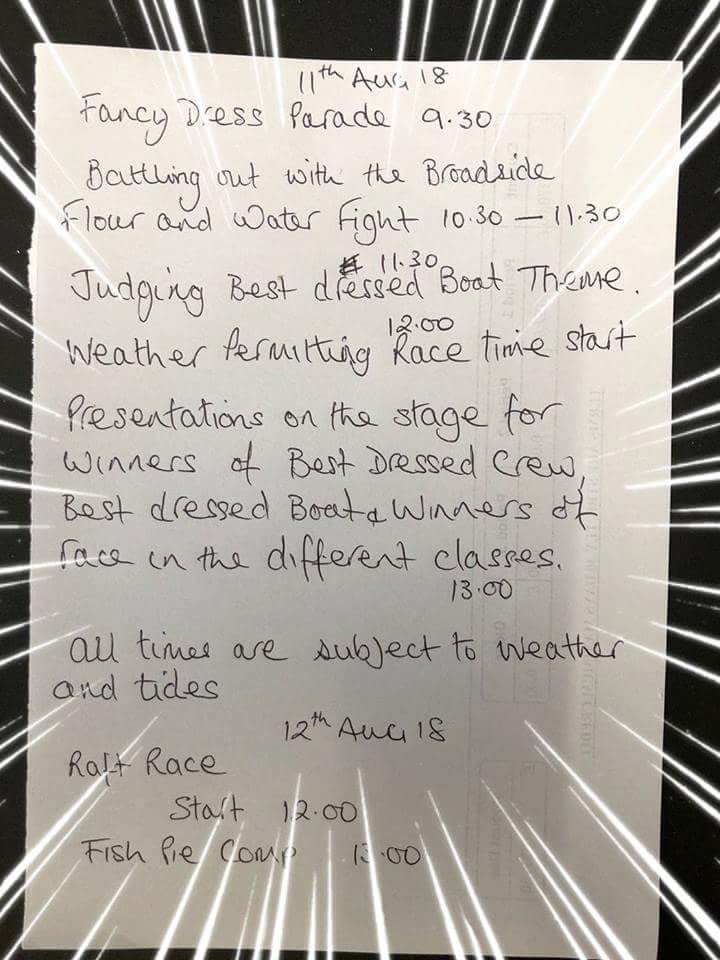 11th Aug 18
Fancy Dress Parade 9.30
Battling out with the Broadside
Flour and Water Fight 10.30 – 11.30
11.30
Judging Best dressed Boat Theme.
12.00
Weather Permitting Race time start
Presentations on the stage for
Winners of Best Dressed Crew,
Best dressed Boat & Winners of
race in the different classes.
13.00
All times are subject to weather
and tides
12th Aug 18
Raft Race
Start 12.00
Fish Pie Comp 13.00